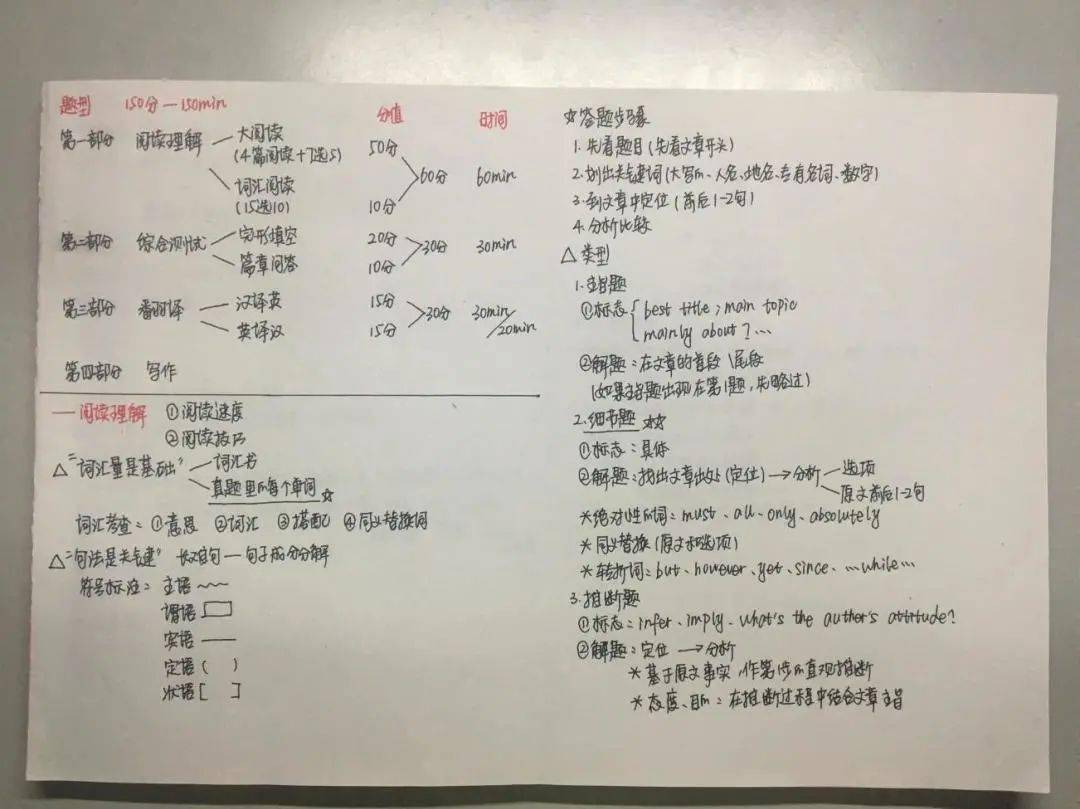 题型 150分—150min 分值 时间
第一部分 阅读理解 大阅读 50分
(4篇阅读+7选5)
60分 60min
词汇阅读
(15选10) 10分
第二部分 综合测试 完形填空 20分
30分 30min
篇章问答 10分
第三部分 翻译 汉译英 15分
30分 30min/20min
英译汉 15分
第四部分 写作
一 阅读理解 ①阅读速度
②阅读技巧
△"词汇量是基础" 词汇书
真题里的每个单词 ☆
词汇考查：①意思 ②词汇 ③搭配 ④同义替换词
△"句法是关键" 长难句—句子成分分解
符号标注：主语
谓语
宾语
定语 ( )
状语 [ ]
☆答题步骤
1.先看题目(先看文章开头)
2.划出关键词(大写的、人名、地名、专有名词、数字)
3.到文章中定位(前后1-2句)
4.分析比较
△类型
1.主旨题
①标志 { best title; main topic
mainly about? …
②解题：在文章的首段\尾段
(如果主旨题出现在第1题,先略过)
2.细节题 ☆☆
①标志：具体
②解题：找出文章出处(定位)→分析 选项
原文前后1-2句
*绝对性的词：must、all、only、absolutely
*同义替换(原文和选项)
*转折词：but、however、yet、since、…while…
3.推断题
①标志：infer、imply、what's the author's attitude?
②解题：定位→分析
*基于原文事实,作第1步的直观推断
*态度、目的：在推断过程中结合文章主旨